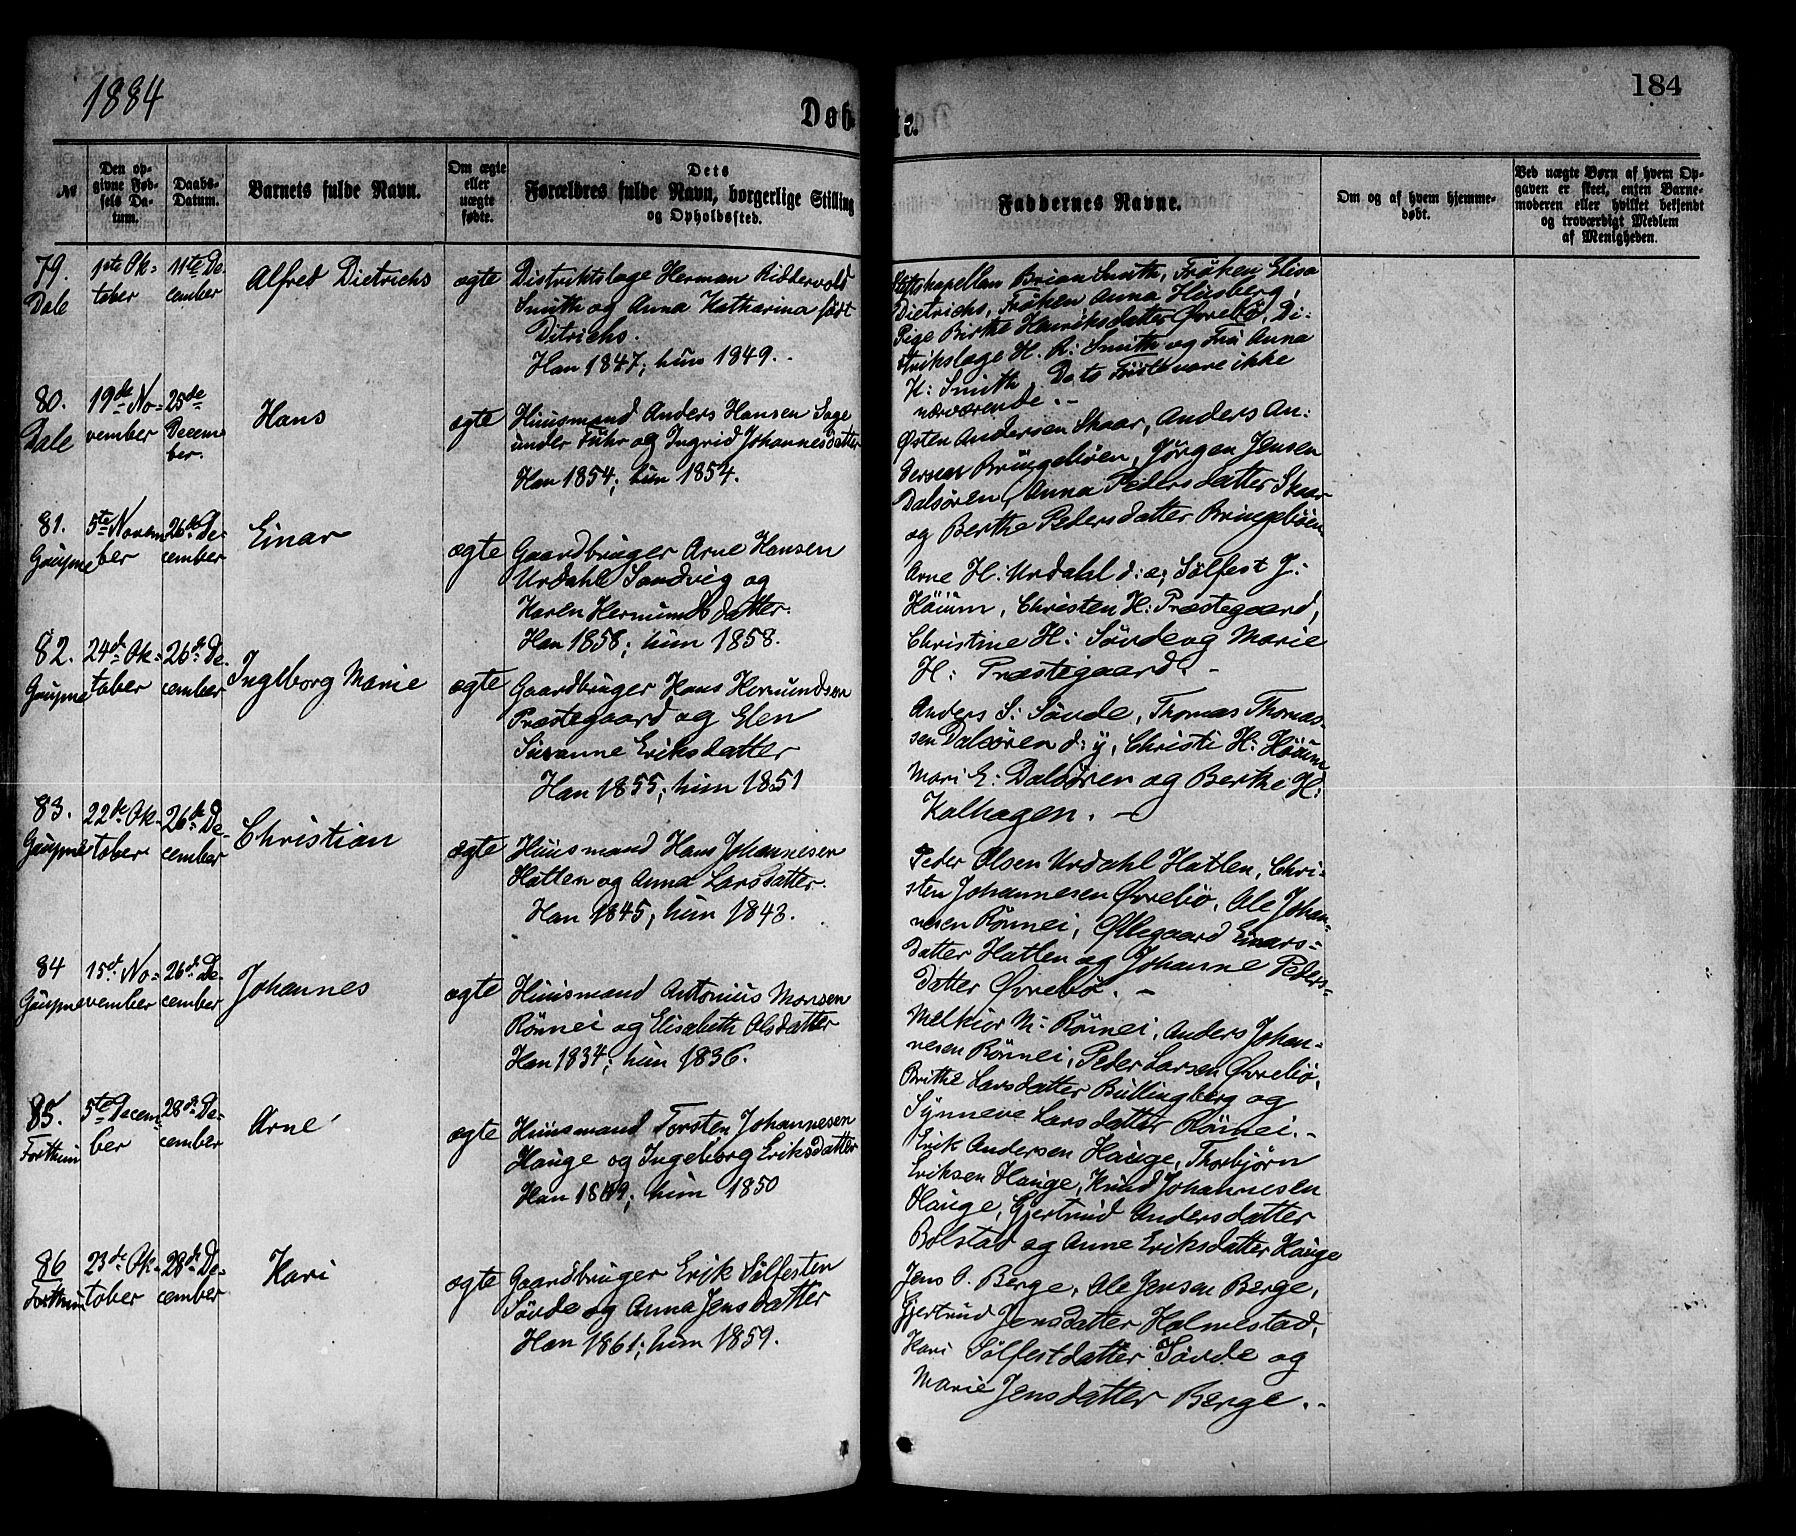 1884
Døb
te.
184
№
Den op-
givne Fød-
sels Da-
tum.
Daabs-
Datum.
Barnets fulde Navn.
Om ægte
eller
uægte
fødte.
Dets
Forældres fulde Navn, borgerlige Stilling
og Opholdssted.
Faddernes Navne.
Om og af hvem hjemme-
døbt.
Ved uægte Børn af hvem Op-
gaven er skeet, enten Barne-
moderen eller hvilket bekjendt
og troværdigt Medlem
af Menigheden.
79.
Dale
1ste Ok-
tober
11te De-
cember
Alfred Dietrichs
ægte
Distriktslæge Herman Riddervold
Smith og Anna Katharina født
Ditrichs.
Han 1847; hun 1849.
Stiftskapellan Brian Smith, Frøken Elisa
Dietrichs, Frøken Anna Husberg,
Pige Birthe Henriksdatter Øvrebø, Di-
striktslæge H. R: Smith og Frü Anna
K: Smith. De to Første vare ikke
nærværende. -
80.
Dale
19de No-
vember
25de
Decem
ber.
Hans
ægte
Huusmand Anders Hansen Sage
under Fuhr og Ingrid Johannesdatter
Han 1854; hun 1854.
Østen Andersen Skaar, Anders An:
dersen Bringebøen, Jørgen Jensen
Dalsøren, Anna Pedersdatter Skaar
og Berthe Pedersdatter Bringebøen
81.
Gaupne
5te Novem
ber
26de De-
cember
Einar
ægte
Gaardbruger Arne Hansen
Urdahl Sandvig og
Karen Hermundsdatter.
Han 1858; hun 1858.
Arne H: Urdahl d: æ; Sølfest J:
Høium, Christen H: Præstegaard,
Christine H: Søvde og Marie
H: Præstegaard. -
82.
Gaupne
24de Ok-
tober
26de De-
cember
Ingeborg Marie
ægte
Gaardbruger Hans Hermundsen
Præstegaard og Elen
Susanne Eriksdatter
Han 1855; hun 1851
Anders S: Søvde, Thomas Thomas-
sen Dalsøren d: y, Christi H: Høium
Mari E: Dalsøren og Berthe H:
Kalhagen. -
83.
Gaupne
22de Ok-
tober
26de De-
cember
Christian
ægte
Huusmand Hans Johannesen
Hatlen og Anna Larsdatter.
Han 1845; hun 1843.
Peder Olsen Urdahl Hatlen, Chri-
sten Johannesen Øvrebø, Ole Johan-
nesen Rönnei, Øllegaard Einars-
datter Hatlen og Johanne Peders-
datter Øvrebø. -
84
Gaupne
15de No-
vember
26de De-
cember
Johannes
ægte
Huusmand Antonius Monsen
Rönnei og Elisabeth Olsdatter
Han 1834; hun 1836.
Melkior M: Rönnei, Anders Johan-
nesen Rönnei, Peder Larsen Øvrebø,
Brithe Larsdatter Bullingberg og
Synneve Larsdatter Rönnei. -
85.
Forthun
5te Decem
ber
28de De-
cember
Arne
ægte
Huusmand Torsten Johannesen
Hauge og Ingeborg Eriksdatter
Han 1849; hun 1850
Erik Andersen Hauge, Thorbjørn
Eriksen Hauge, Knud Johannesen
Hauge, Gjertrud Andersdatter
Bolstad og Anne Eriksdatter Hauge
86
Forthun
23de Ok-
tober
28de De-
cember
Kari
ægte
Gaardbruger Erik Sølfesten
Søvde og Anna Jensdatter
Han 1861; hun 1859.
Jens O. Berge, Ole Jensen Berge,
Gjertrud Jensdatter Holmestad,
Kari Sølfestdatter Søvde og
Marie Jensdatter Berge. -